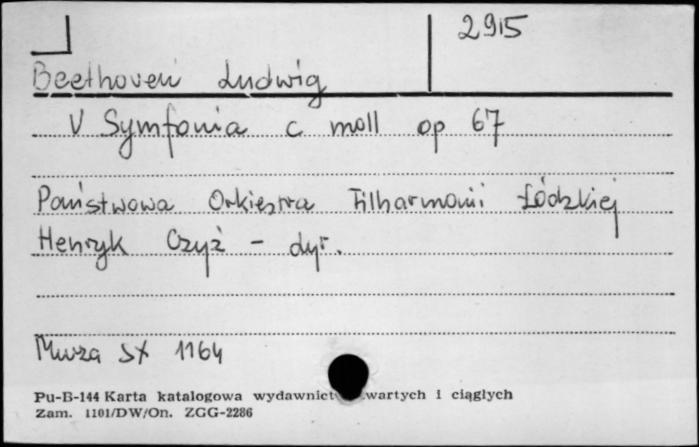 2915
Beethoven Ludwig
V Symfonia c moll op 67
Państwowa Orkiestra Filharmonii Łódzkiej
Henryk Czyż - dyr.
Muza SX 1164
Pu-B-144 Karta katalogowa wydawnict wartych i ciągłych
Zam. 1101/DW/On. ZGG-2286